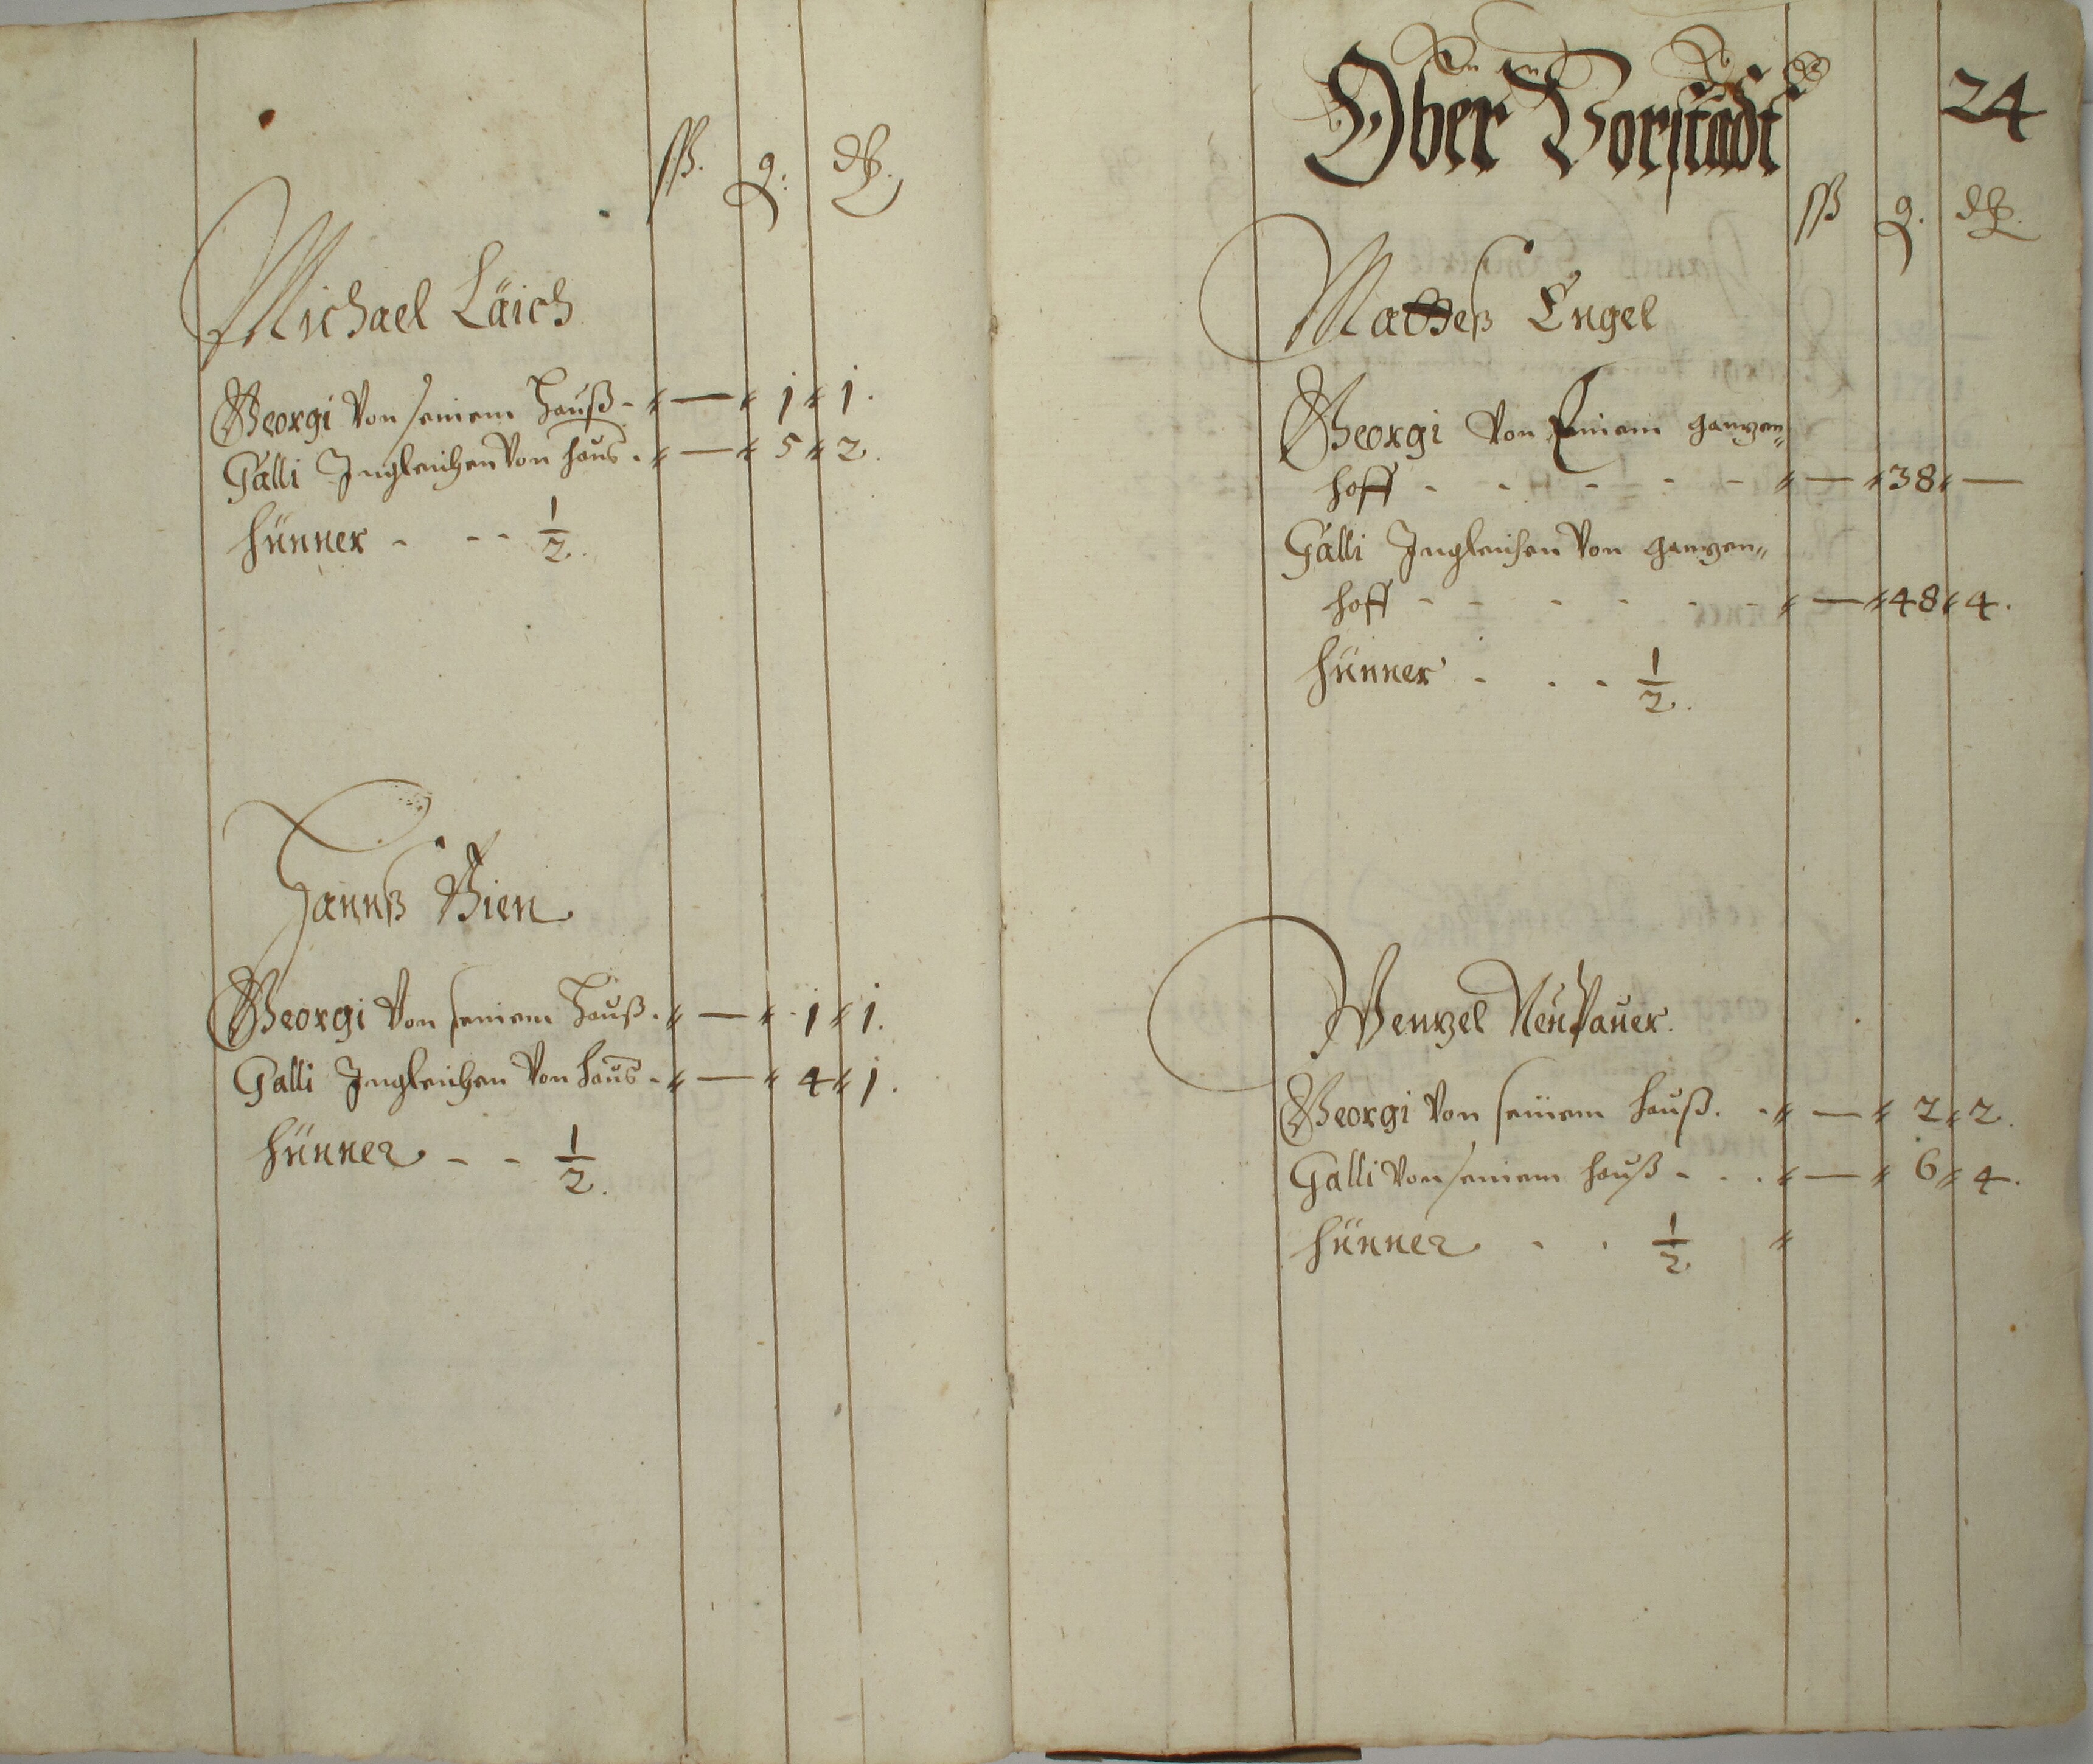 ſß. g: d₰.
Michael Läich
Georgi Von seinem Hauß - — 1 1.
Galli Ingleichen Von hauß. — 5 2.
hünner - - - 1/2.
Hannß Bien
Georgi Von seinem Hauß. — 1 1.
Galli Ingleichen Von hauß - — 4 1.
hünner - - 1/2.
24
Ober Vorstadt
ſß g. d₰.
Matheß Engel
Georgi Von seinem ganzen
hoff - - - - - — 38 —
Galli Ingleichen Von ganzen
hoff - - - - - - — 48 4.
hünner - - - 1/2.
Wenzel Neupauer.
Georgi Von seinem hauß. - — 2 2.
Galli Von seinem hauß - - . — 6 4.
hünner - . 1/2